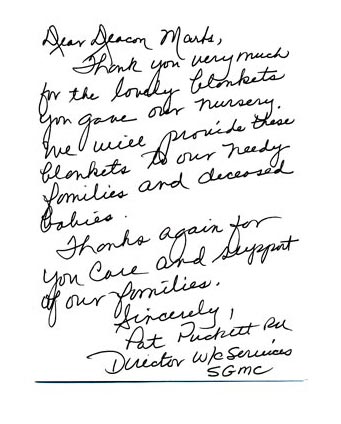 Dear Deacon Marks,
Thank you very much
for the lovely blankets
you gave our nursery.
We will provide these
blankets to our needy
families and deceased
babies.
Thanks again for
you care and support
of our families.
Sincerely,
Pat Puckett RN
Director W/C Services
SGMC